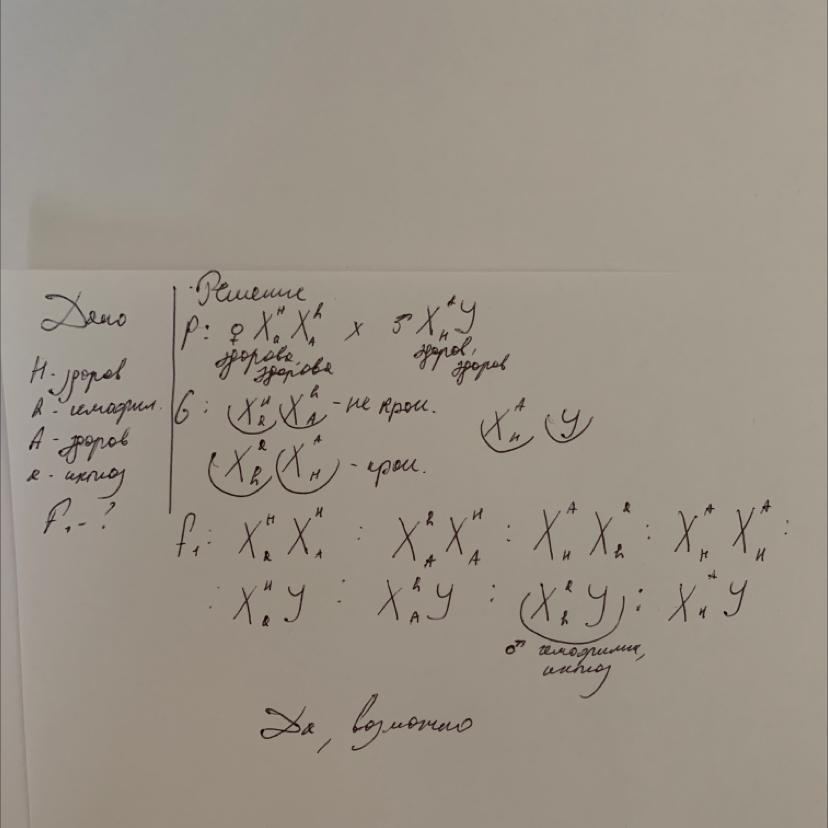 Дано
H - здоров
h - гемофил.
A - здоров
a - ихтиоз
F₁ - ?
Решение
P: ♀ XᴴₐXʰ_A × ♂ Xᴬ_HY
здорова, здорова
здоров, здоров
G: Xᴴₐ Xʰ_A - не крос.
Xᴬ_H Y
Xᵃₕ Xᴬ_H - крос.
F₁: XᴴₐXᴴ_A : Xʰ_AXᴴ_A : Xᴬ_HXᵃₕ : Xᴬ_HXᴬ_H :
: XᴴₐY : Xʰ_AY : XᵃₕY : Xᴬ_HY
♂ гемофилия,
ихтиоз
Да, возможно